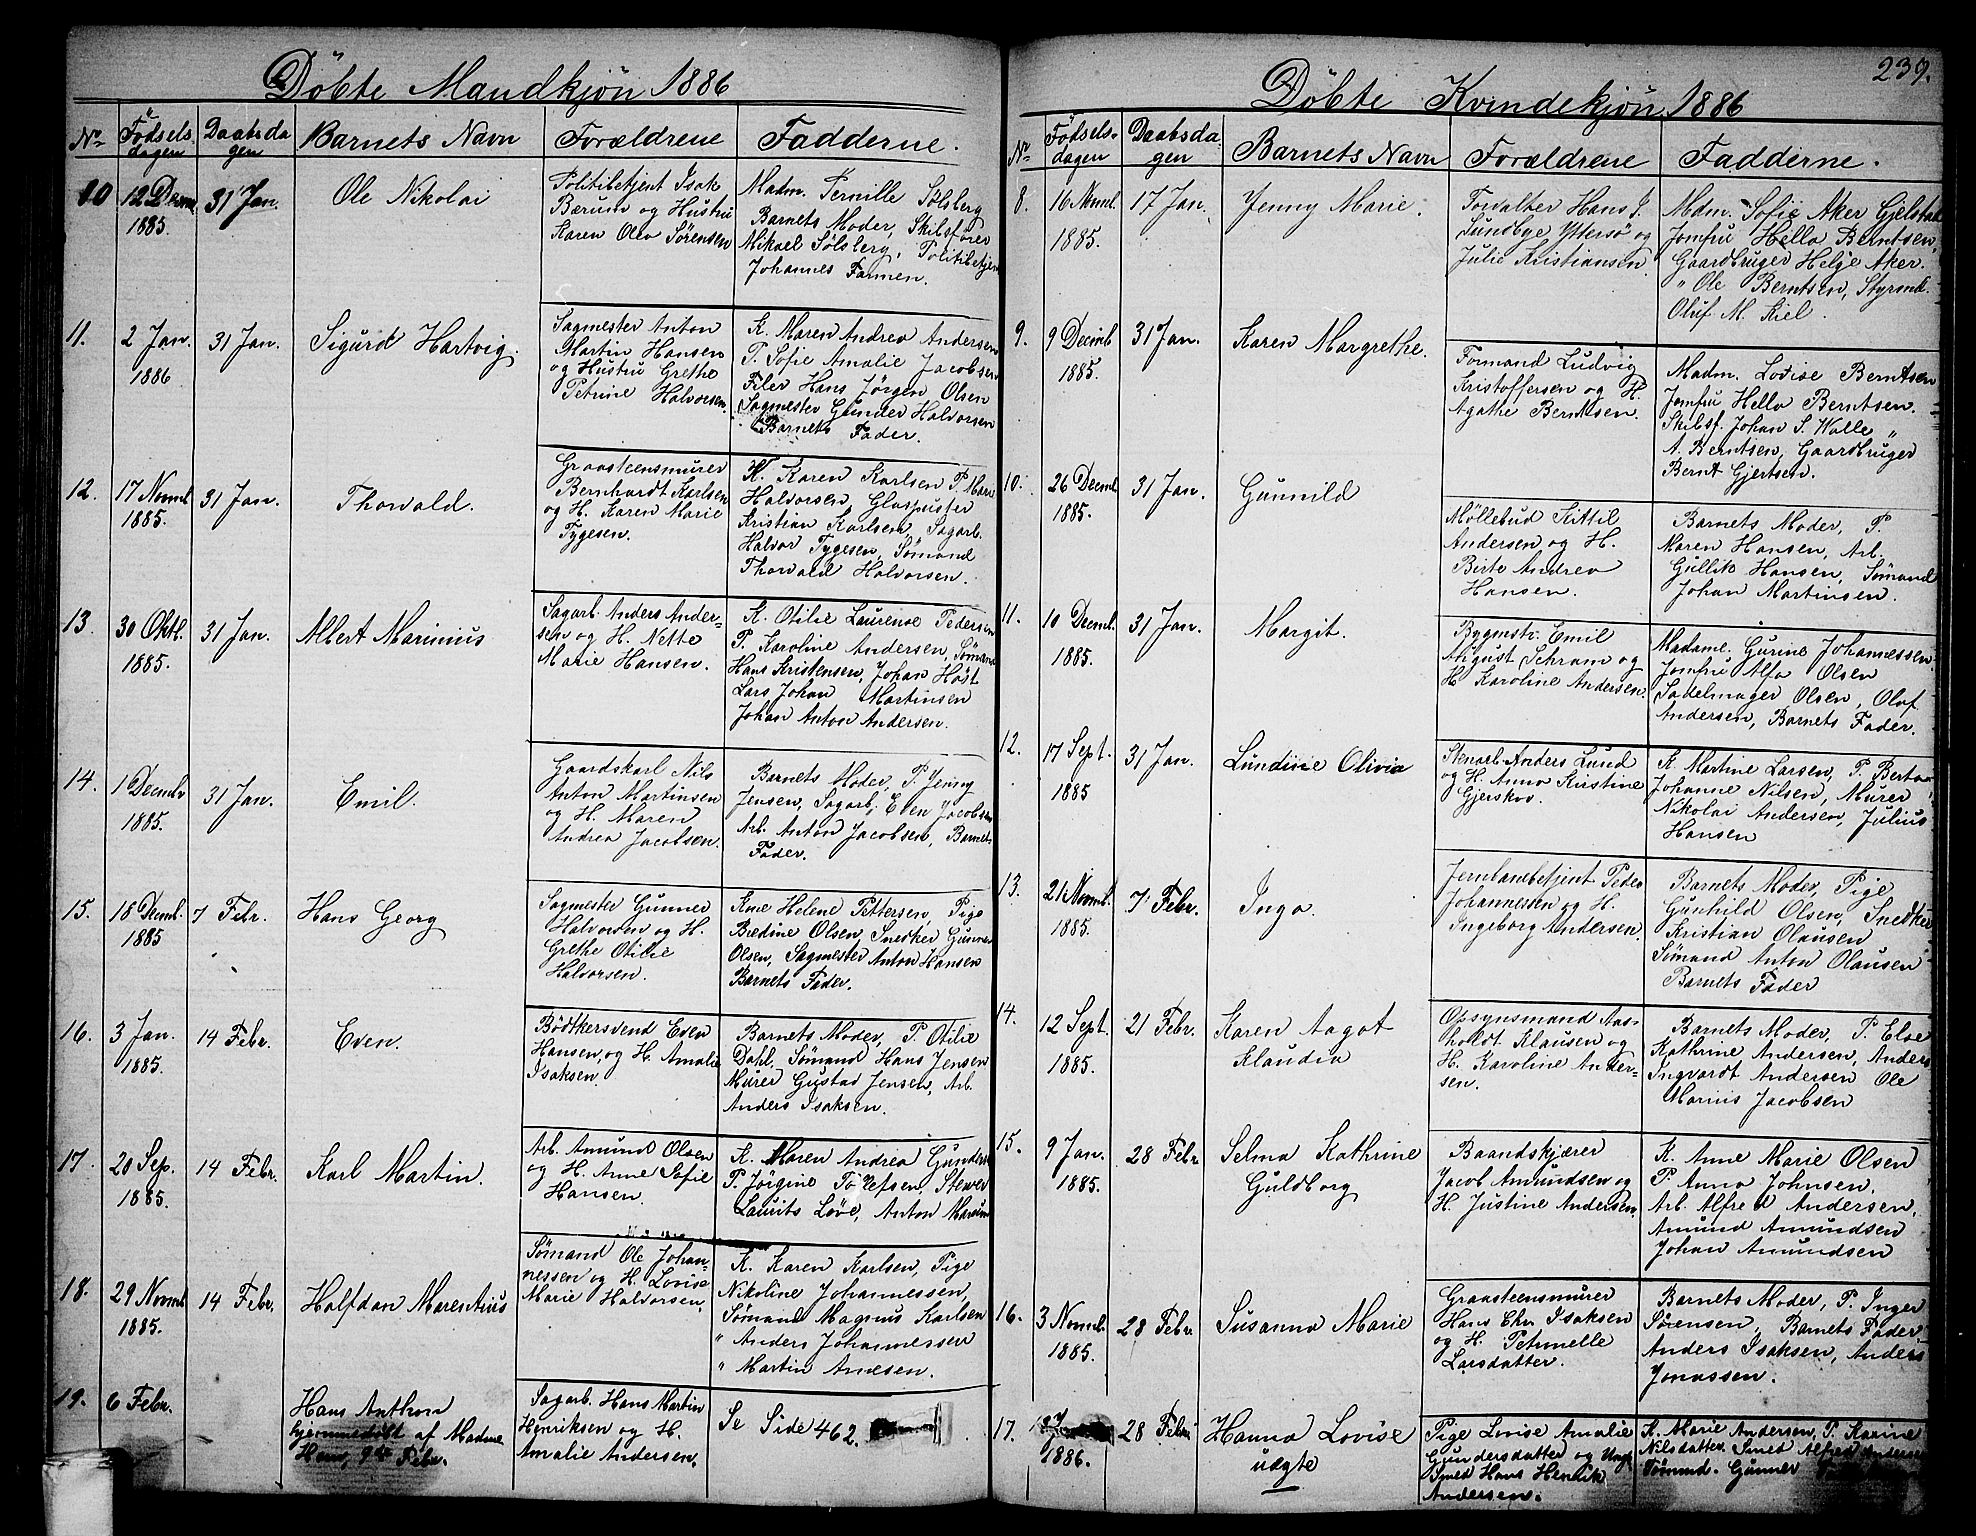 Döbte Mandkjön 1886
No Fødsels-dagen Daabsda gen Barnets Navn Forældrene Fadderne.
10 12 Decmb 1885. 31 Jan. Ole Nikolai
Politibetjent Isak
Bærum og Hustru
Karen Olea Sørensen
Madm. Pernille Sølsberg
Barnets Moder, Skibsfører
Mikael Sølsberg, Politibetjen
Johannes Farmen.
11. 2 Jan. 1886 31 Jan. Sigurd Hartvig.
Sagmester Anton
Martin Hansen
og Hustru Grethe
Petrine Halvorsen.
K. Maren Andrea Andersen
P. Sofie Amalie Jacobsen
Filer Hans Jörgen Olsen
Sagmester Gunder Halvorsen
Barnets Fader.
12. 17 Novmb 1885. 31 Jan. Thorvald.
Graasteensmurer
Bernhardt Karlsen
og H. Karen Marie
Tygesen.
K. Karen Karlsen P. Mari
Halvorsen, Glaspuster
Kristian Karlsen, Sagarb.
Halvor Tygesen, Sømand
Thorvald Halvorsen.
13. 30 Oktb. 1885. 31 Jan. Albert Marinius
Sagarb. Anders Ander-
sen og H. Nette
Marie Hansen.
K. Otilie Laurense Pedersen
P. Karoline Andersen, Sømand
Hans Kristensen, Johan Høst
Lars Johan Martinsen
Johan Anton Andersen.
14. 1 Decmbr 1885. 31 Jan. Emil.
Gaardskarl Nils
Anton Martinsen
og H. Maren
Andrea Jacobsen.
Barnets Moder, P. Jenny
Jensen, Sagarb. Even Jacobsen
Arb. Anton Jacobsen, Barnets
Fader.
15. 18 Decmb. 1885 7 Febr. Hans Georg
Sagmester Gunner
Halvorsen og H.
Grethe Otilie
Halvorsen.
Kne Helene Pettersen, Pige
Bredine Olsen, Snedker Gunner
Olsen, Sagmester Anton Hansen
Barnets Fader.
16. 3 Jan. 1885. 14 Febr. Even.
Bödtkersvend Even
Hansen, og H. Amalie
Isaksen.
Barnets Moder, P. Otilie
Dahl, Sømand Hans Jensen
Murer Gustav Jensen, Arb.
Anders Isaksen.
17. 20 Sep. 1885. 14 Febr. Karl Martin.
Arb. Amund Olsen
og H. Anne Sofie
Hansen.
K. Maren Andrea Gunders
P. Jörgine Tollefsen, Stewer
Laurits Löve, Anton
18. 29 Novmb 1885. 14 Febr. Halfdan Marentius
Sømand Ole Johan-
nessen og H. Lovise
Marie Halvorsen.
K. Karen Karlsen, Pige
Nikoline Johannessen,
Sømand Magnus Karlsen
" Anders Johannessen
" Martin Arnesen.
19. 6 Febr. Hans Anthon
hjemmedøbt af Madme
Hem, 9de Febr.
Sagarb. Hans Martin
Henriksen og H.
Amalie Andersen.
Se Side 462.
239.
Döbte Kvindekjön 1886
No Fødsels-dagen Daabsda-gen Barnets Navn Forældrene Fadderne.
8. 16 Novmb. 1885. 17 Jan. Jenny Marie.
Forvalter Hans J.
Sundbye Yttersø og
Julie Kristiansen.
Mdm. Sofie Aker Gjelstad
Jomfru Hella Berntsen,
Gaardbruger Helge Aker.
" Ole Berntsen, Styrmd.
Oluf M. Kiel.
9. 9 Decmb 1885. 31 Jan. Karen Margrethe.
Formand Ludvig
Kristoffersen og H.
Agathe Berntsen.
Madm. Lovise Berntsen
Jomfru Hella Berntsen.
Skibsf. Johan S. Walle "
A. Berntsen, Gaardbruger
Bernt Gjertsen.
10. 26 Decmb 1885. 31 Jan. Gunnild
Møllebud Kittil
Andersen og H.
Birte Andrea
Hansen.
Barnets Moder, P.
Maren Hansen, Arb.
Gullik Hansen, Sømand
Johan Martinsen.
11. 10 Decmb. 1885. 31 Jan. Margit.
Bygmstr. Emil
August Schram og
H. Karoline Andersen.
Madame. Gurine Johannessen
Jomfru Alfa Olsen
Sadelmager Olsen, Oluf
Andersen, Barnets Fader.
12. 17 Sept. 1885 31 Jan. Lundine Olivia
Stenarb. Anders Lund
og H. Anna Kristine
Gjerskov.
K. Martine Larsen, P. Berta
Johanne Nilsen, Murer
Nikolai Andersen, Julius
Hansen
13. 21 Novmb. 1885. 7 Febr. Inga.
Jernbanebetjent Peder
Johannesen og H.
Ingeborg Andersen.
Barnets Moder, Pige
Gunhild Olsen, Snedker
Kristian Olausen
Sømand Anton Olausen
Barnets Fader
14. 12 Sept. 1885. 21 Febr. Karen Aagot
Klaudia
Opsynsmand Aas-
holdt Klausen og
H. Karoline Ander-
sen.
Barnets Moder, P. Elae
Kathrine Andersen, Anders
Ingvardt Andersen Ole
Marius Jacobsen
15. 9 Jan. 1885. 28 Febr Selma Kathrine
Guldborg
Baandskjærer
Jacob Amundsen og
H. Justine Andersen.
K. Anne Marie Olsen
P. Anna Johnsen.
Arb. Alfred Andersen,
Amund Amundsen
Johan Amundsen
16. 3 Novmb. 1885. 28 Febr Susanna Marie
Graasteensmurer
Hans Chr. Isaksen
og H. Petrnelle
Larsdatter.
Barnets Moder, P. Inger
Sørensen, Barnets Fader,
Anders Isaksen, Anders
Jonassen.
17. 1886. 28 Febr Hanna Lovise
uægte
Pige Lovise Amalie
Gundersdatter og Ungk
Smed Hans Henrik
Andersen.
K. Marie Andersen, P. Karine
Nilsdatter Smed Alfred Anders
Tømmd. Gunner